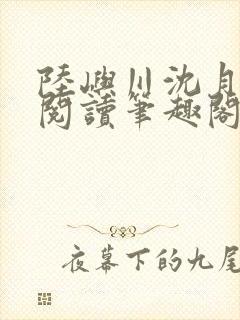 陸嶼川沈月
閱讀筆趣閣
夜幕下的九尾